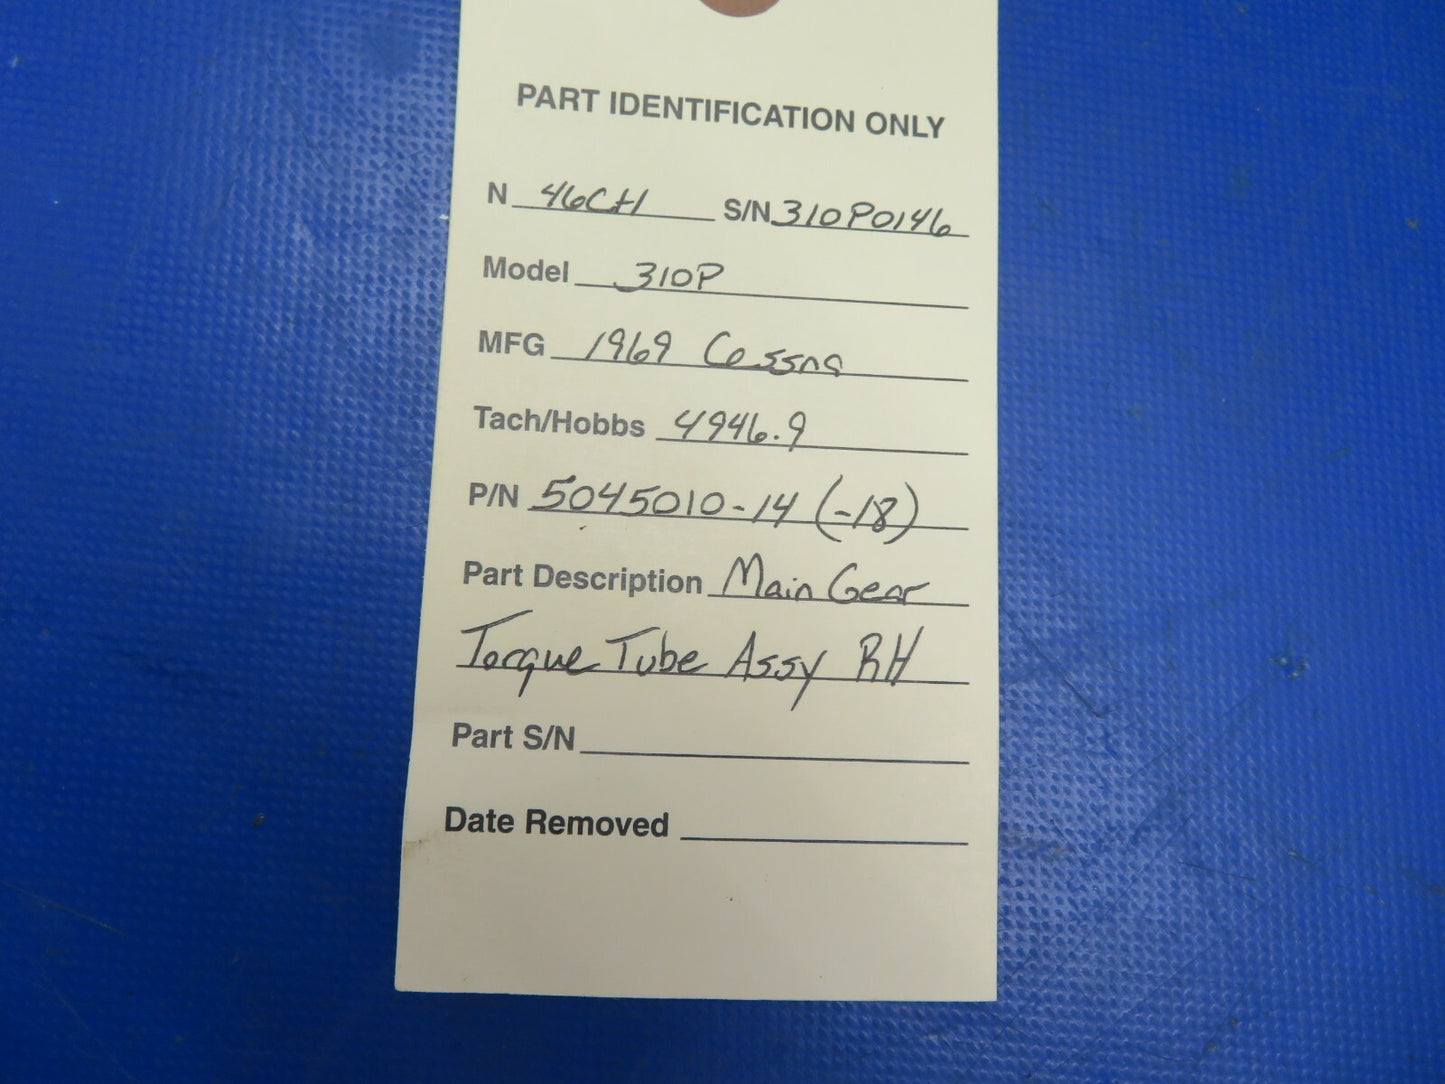 PART IDENTIFICATION ONLY
N 46CH S/N 310P0146
Model 310P
MFG 1969 Cessna
Tach/Hobbs 4946.9
P/N 5045010-14 (-18)
Part Description Main Gear
Torque Tube Assy RH
Part S/N
Date Removed